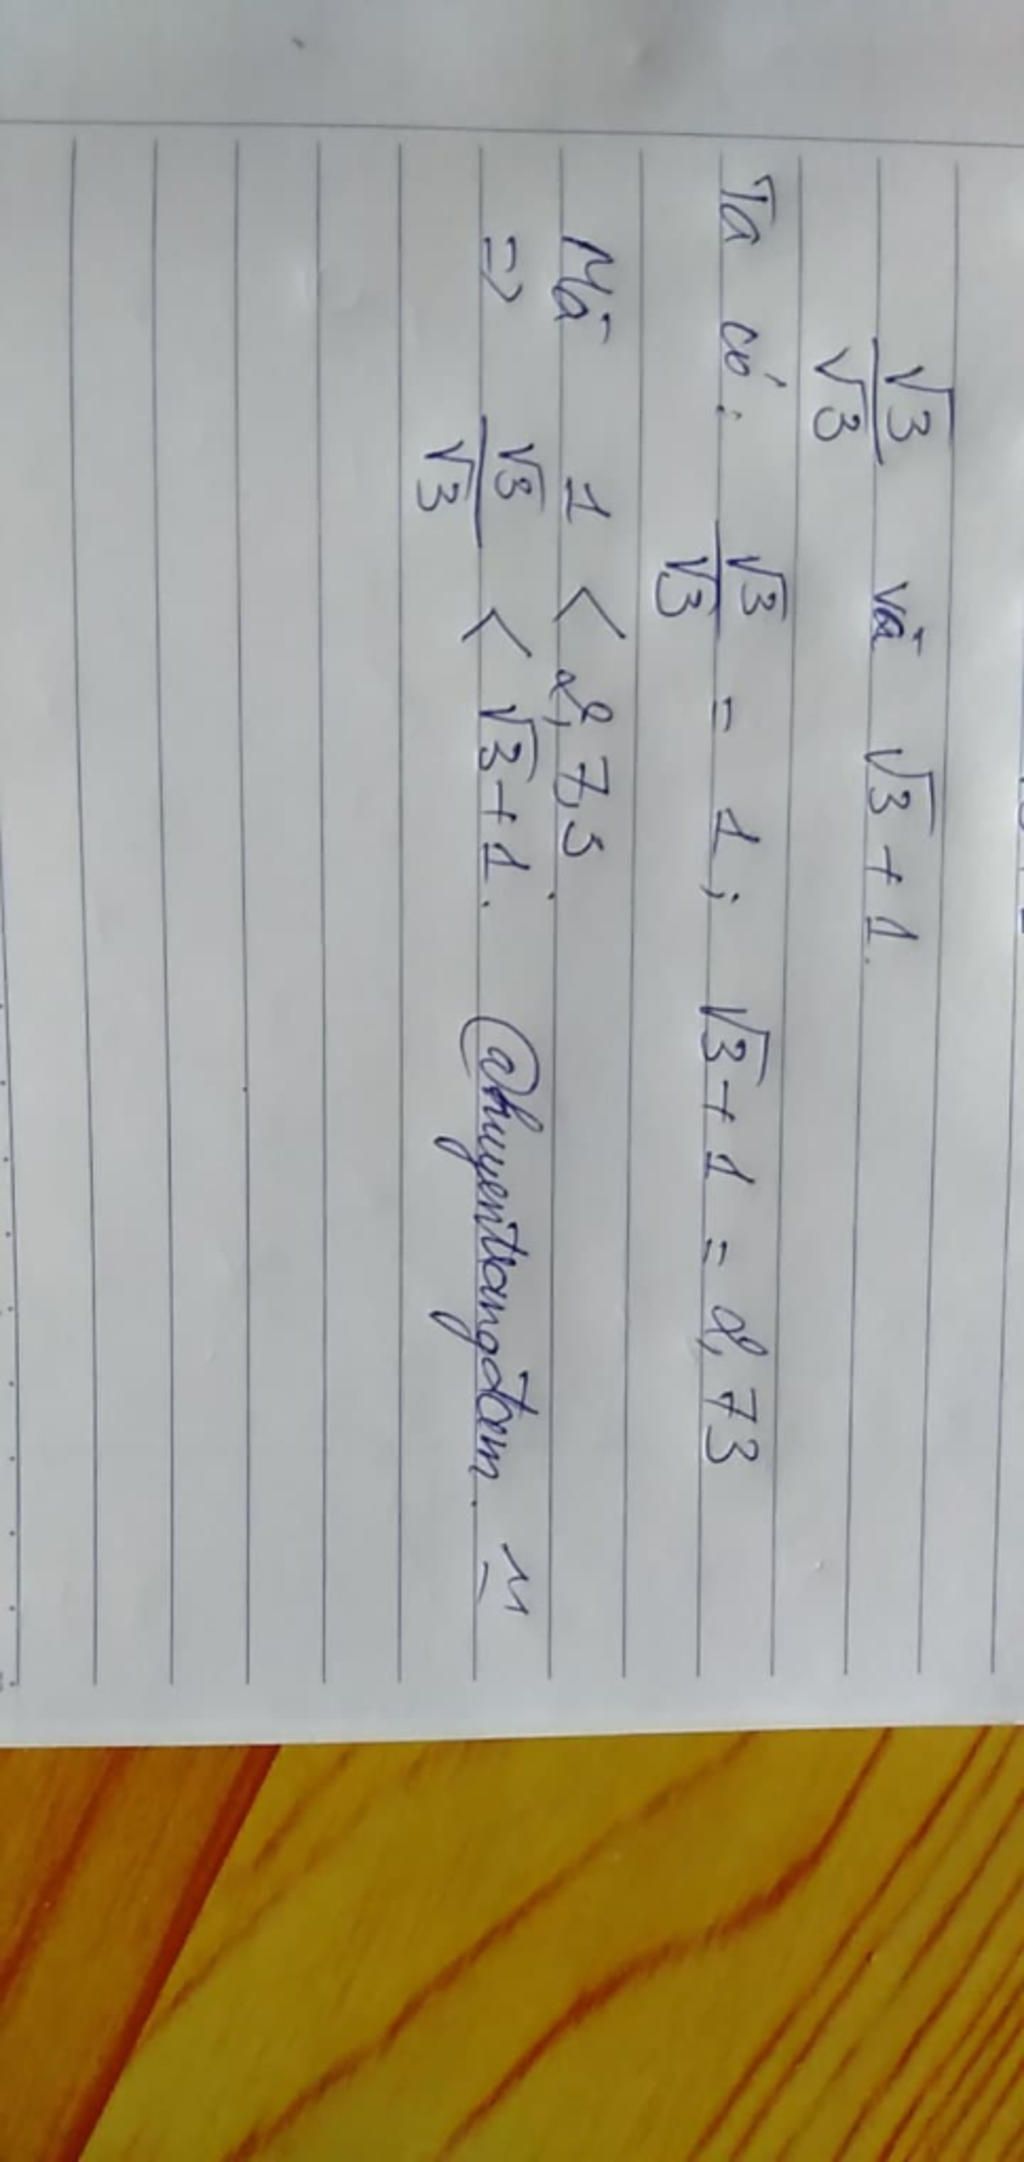 √3/√3 và √3 + 1.
Ta có: √3/√3 = 1; √3 + 1 = 2,73
Mà 1 < 2,7,3.
=> √3/√3 < √3 + 1. @huyentrangdam.